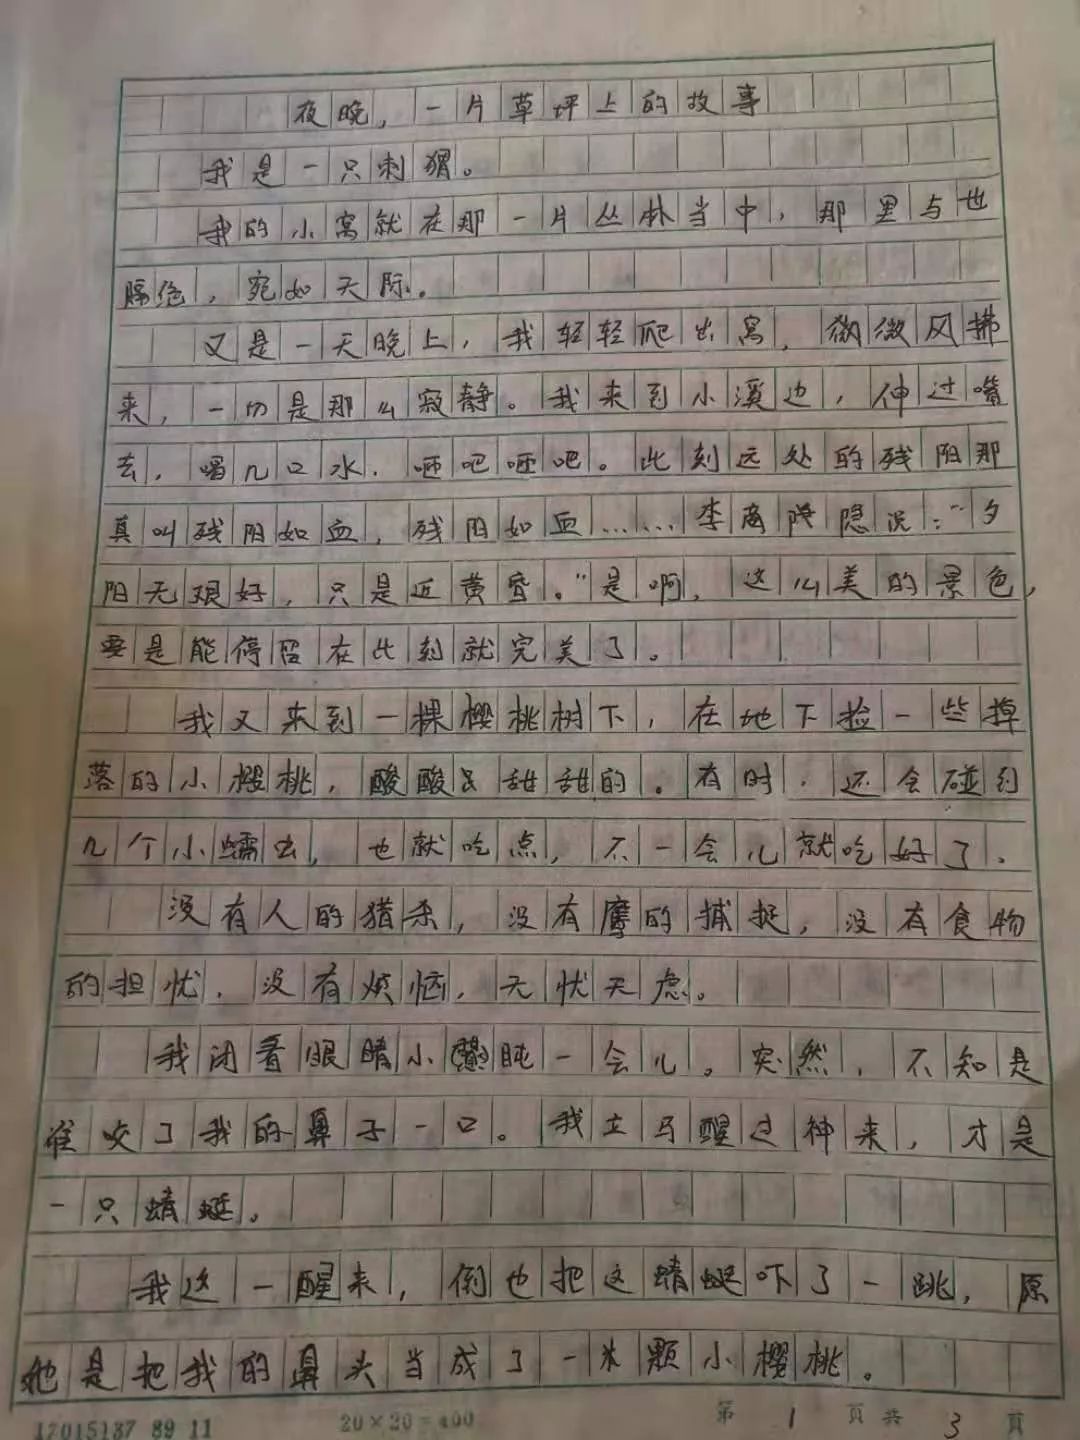 夜晚，一片草坪上的故事
我是一只刺猬。
我的小窝就在那一片丛林当中，那里与世
隔绝，宛如天际。
又是一天晚上，我轻轻爬出窝，微微风拂
来，一切是那么寂静。我来到小溪边，伸过嘴
去，喝几口水，咂吧咂吧。此刻远处的残阳那
真叫残阳如血，残阳如血……李商隐说："夕
阳无艰好，只是近黄昏。"是啊，这么美的景色，
要是能停留在此刻就完美了。
我又来到一棵樱桃树下，在地下捡一些掉
落的小樱桃，酸酸甜甜的。有时，还会碰到
几个小蠕虫，也就吃点，不一会儿就吃好了。
没有人的猎杀，没有鹰的捕捉，没有食物
的担忧，没有烦恼，无忧无虑。
我闭着眼睛小盹一会儿。突然，不知是
谁咬了我的鼻子一口。我立马醒过神来，才是
一只蜻蜓。
我这一醒来，倒也把这蜻蜓吓了一跳，原
他是把我的鼻头当成了一颗小樱桃。
17015137 89 11 20×20=400 第 1 页 共 3 页